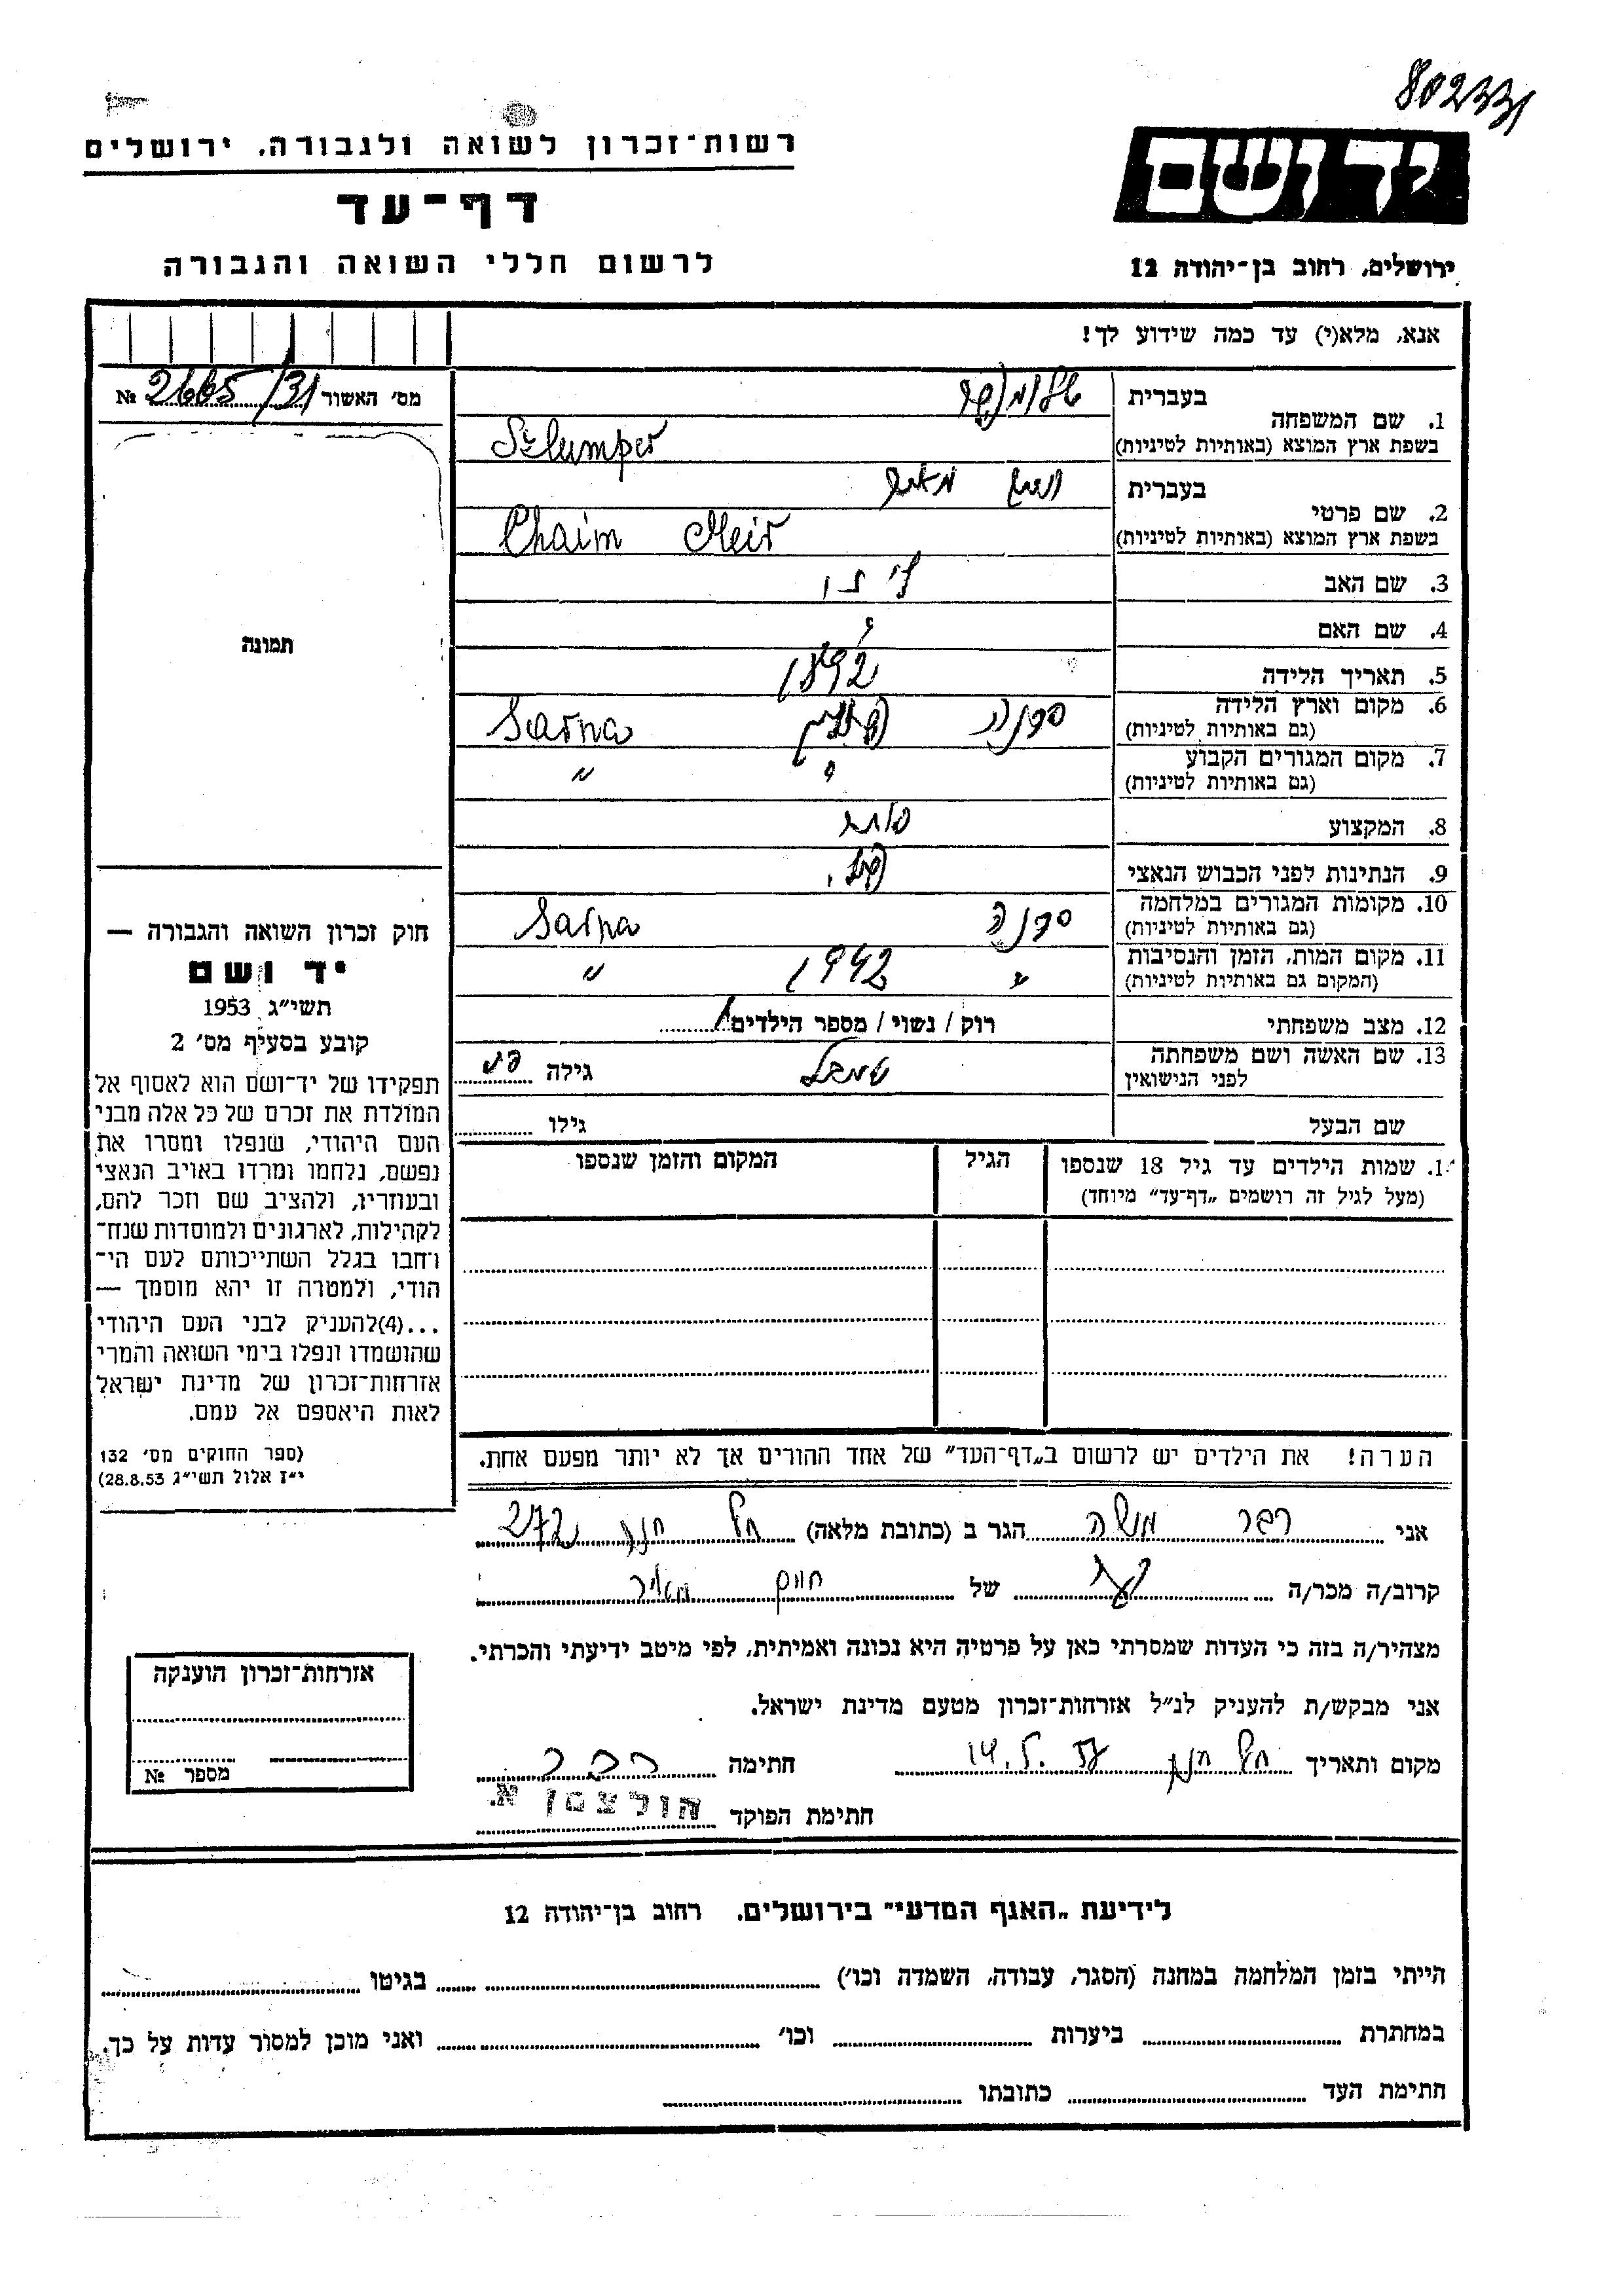 80233
יד ושם
ירושלים, רחוב בן־יהודה 12
רשות־זכרון לשואה ולגבורה, ירושלים
דף־עד
לרשום חללי השואה והגבורה
אנא, מלא(י) עד כמה שידוע לך!
מס׳ האשור № 2665/31
1. שם המשפחה בעברית
בשפת ארץ המוצא (באותיות לטיניות) Szlumper
2. שם פרטי בעברית חיים מאיר
בשפת ארץ המוצא (באותיות לטיניות) Chaim Meir
3. שם האב
4. שם האם ?
5. תאריך הלידה 1892
6. מקום וארץ הלידה סרנה Sarna
(גם באותיות לטיניות)
7. מקום המגורים הקבוע " "
(גם באותיות לטיניות)
8. המקצוע סוחר
9. הנתינות לפני הכבוש הנאצי
10. מקומות המגורים במלחמה סרנה Sarna
(גם באותיות לטיניות)
11. מקום המות, הזמן והנסיבות " 1942 "
(המקום גם באותיות לטיניות)
12. מצב משפחתי רוק / נשוי / מספר הילדים
13. שם האשה ושם משפחתה
לפני הנישואין גילה
שם הבעל גילו
1. שמות הילדים עד גיל 18 שנספו הגיל המקום והזמן שנספו
(מעל לגיל זה רושמים „דף־עד״ מיוחד)
הערה! את הילדים יש לרשום ב„דף־העד״ של אחד ההורים אך לא יותר מפעם אחת.
תמונה
חוק זכרון השואה והגבורה —
יד ושם
תשי״ג 1953
קובע בסעיף מס׳ 2
תפקידו של יד־ושם הוא לאסוף אל
המולדת את זכרם של כל אלה מבני
העם היהודי, שנפלו ומסרו את
נפשם, נלחמו ומרדו באויב הנאצי
ובעוזריו, ולהציב שם וזכר להם,
לקהילות, לארגונים ולמוסדות שנח־
רחבו בגלל השתייכותם לעם הי־
הודי, ולמטרה זו יהא מוסמך —
...(4)להעניק לבני העם היהודי
שהושמדו ונפלו בימי השואה והמרי
אזרחות־זכרון של מדינת ישראל
לאות היאספם אל עמם.
(ספר החוקים מס׳ 132
י״ז אלול תשי״ג 28.8.53)
אני רבר משה הגר ב (כתובת מלאה) תל חנן 272
קרוב/ה מכר/ה של חיים מאיר
מצהיר/ה בזה כי העדות שמסרתי כאן על פרטיה היא נכונה ואמיתית, לפי מיטב ידיעתי והכרתי.
אני מבקש/ת להעניק לנ״ל אזרחות־זכרון מטעם מדינת ישראל.
מקום ותאריך תל חנן 14.5. חתימה רבר
חתימת הפוקד הולצמן א.
אזרחות־זכרון הוענקה
מספר №
לידיעת „האגף המדעי״ בירושלים, רחוב בן־יהודה 12
הייתי בזמן המלחמה במחנה (הסגר, עבודה, השמדה וכו׳) בגיטו
במחתרת ביערות וכו׳ ואני מוכן למסור עדות על כך.
חתימת העד כתובתו